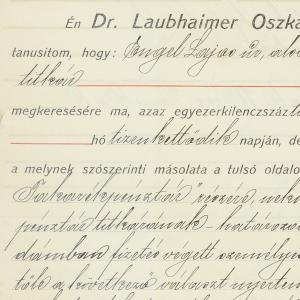 Én Dr. Laubhaimer Oszká
tanusitom, hogy: Engel Lajos úr, a
titkár
megkeresésére ma, azaz egyezerkilenczszáz ti
hó tizenkettődik napján, de
a melynek szószerinti másolata a tulsó oldalo
Takarékpénztár" részére, nek
pénztár titkárának - határoza
diámban fizetés végett személye
tőle a következő választ nyertem